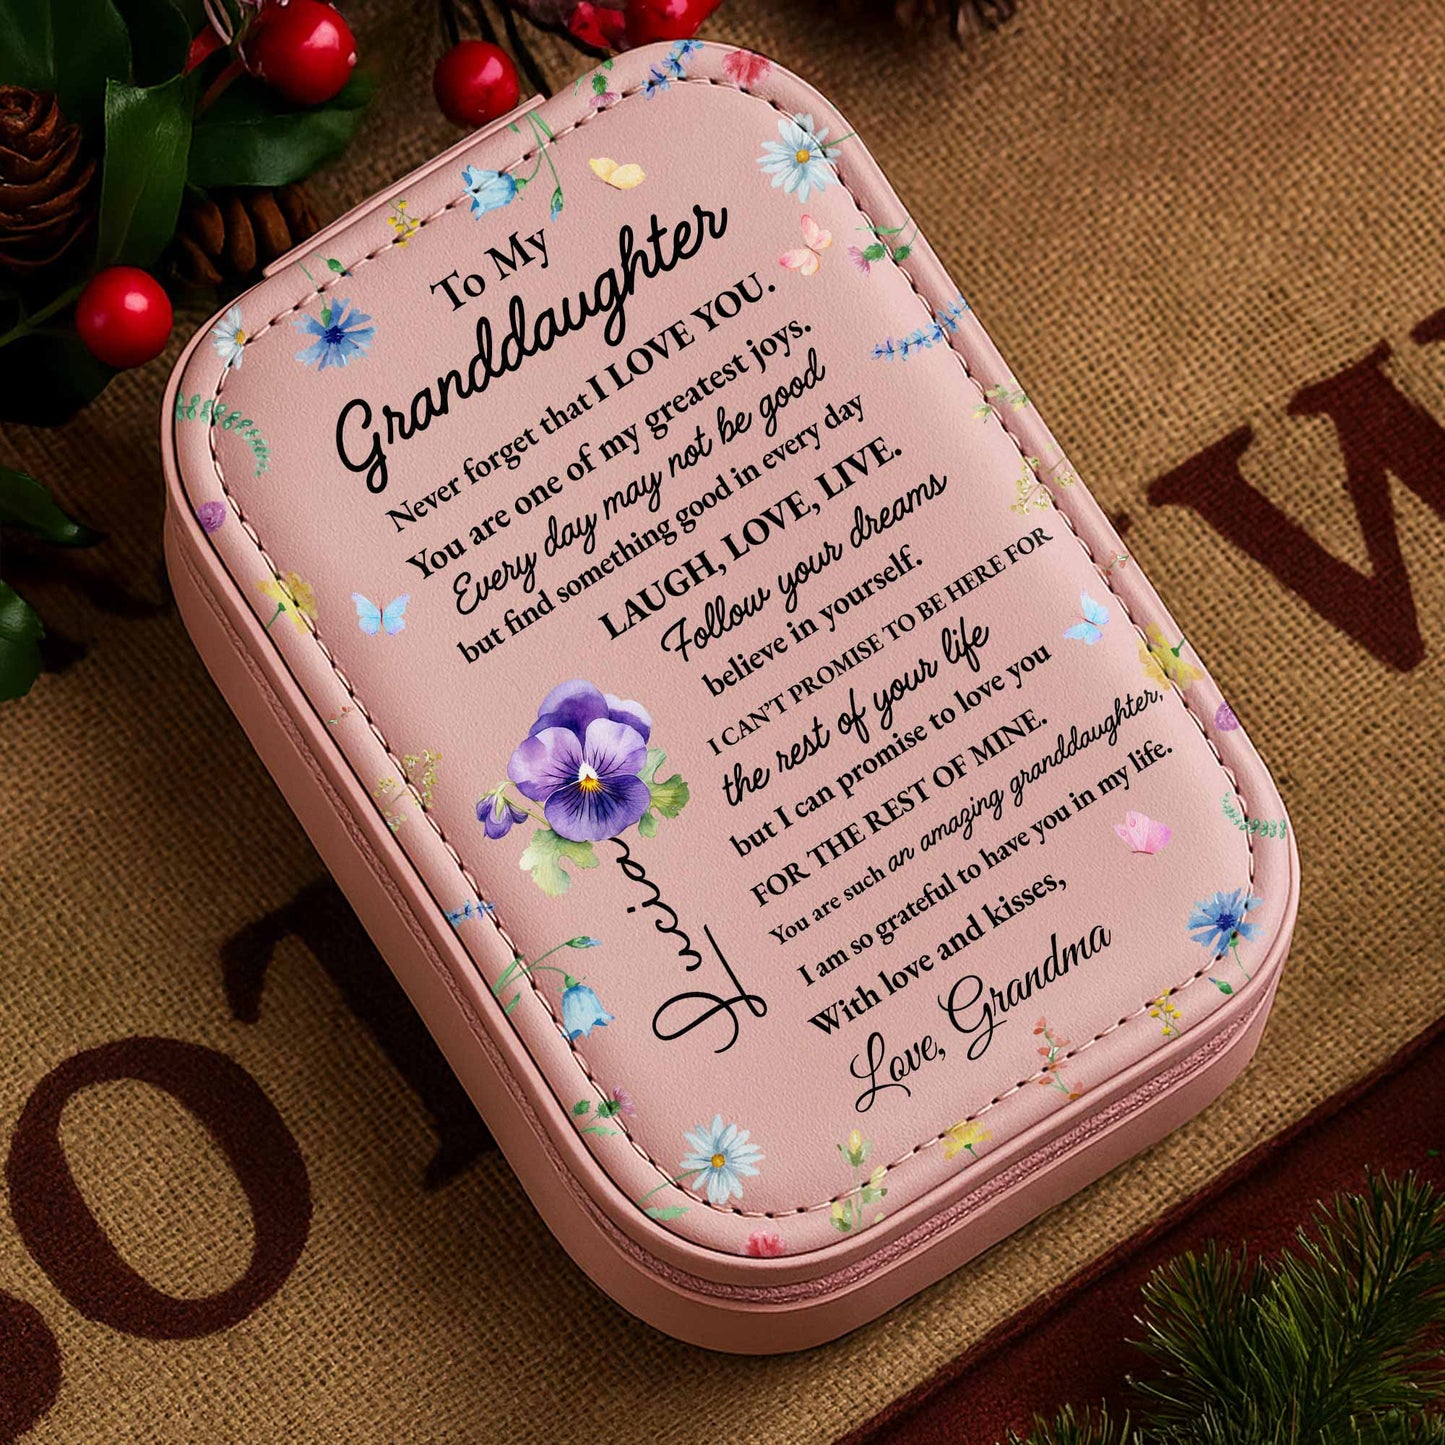 To My
Granddaughter
Never forget that I LOVE YOU.
You are one of my greatest joys.
Every day may not be good
but find something good in every day
LAUGH, LOVE, LIVE.
Follow your dreams
believe in yourself.
I CAN'T PROMISE TO BE HERE FOR
the rest of your life
but I can promise to love you
FOR THE REST OF MINE.
You are such an amazing granddaughter,
I am so grateful to have you in my life.
With love and kisses,
Love, Grandma
Lucia